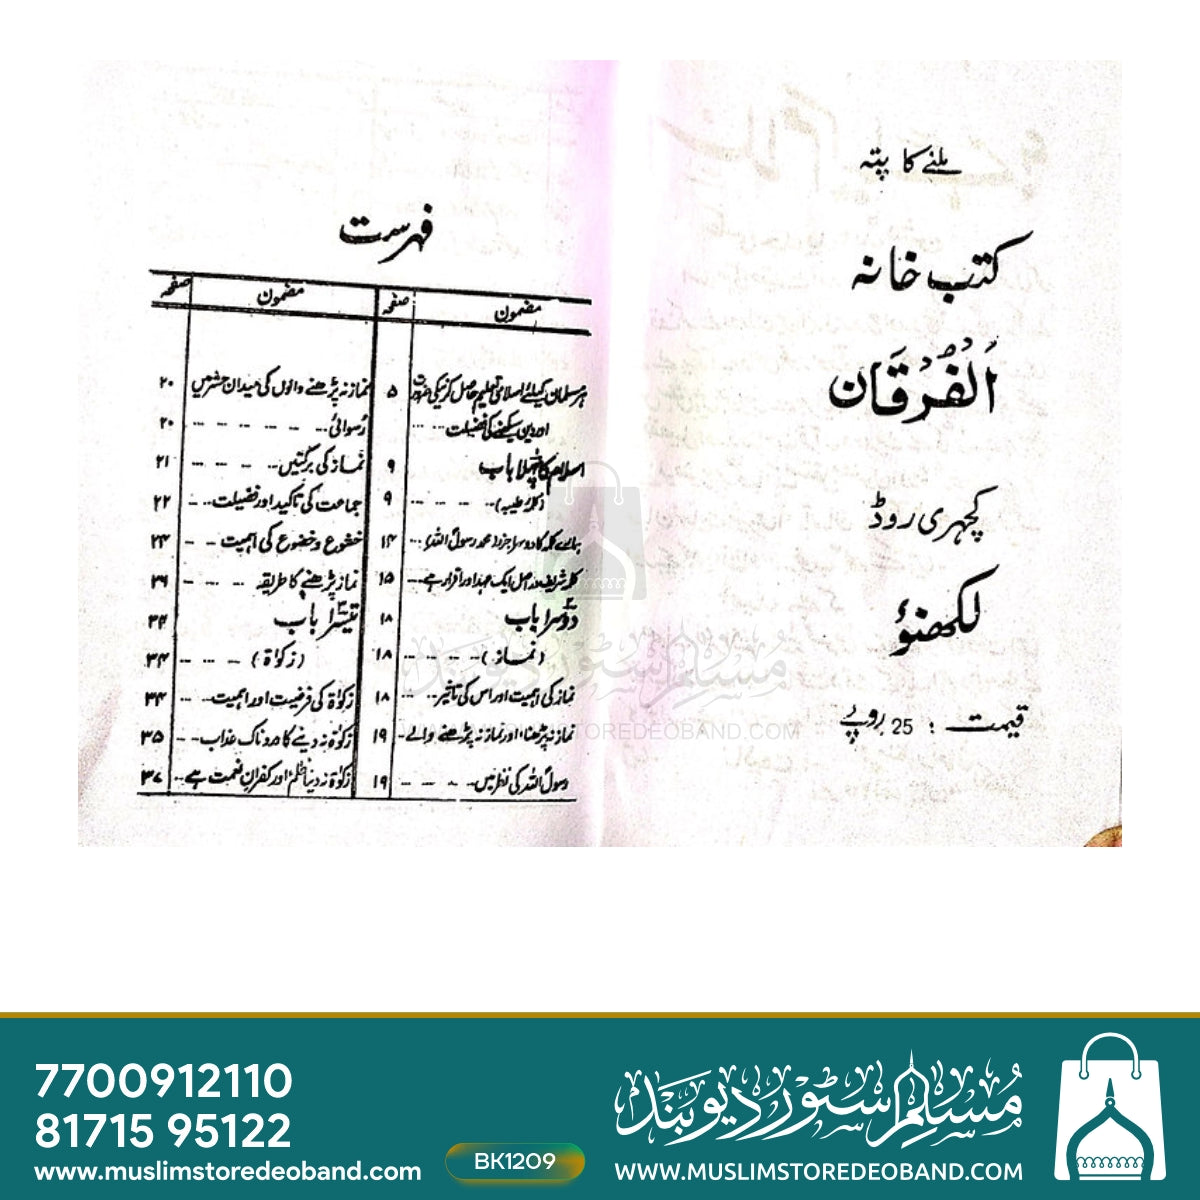 ملنے کا پتہ
کتب خانہ
الفُرقَان
کچہری روڈ
لکھنؤ
قیمت : 25 روپے
فہرست
مضمون صفحہ مضمون صفحہ
ہر مسلمان کیلئے اسلامی تعلیم حاصل کرنیکی ضرورت ۵
اور دین سیکھنے کی فضیلت ....
اسلام کا پہلا باب ۹
(کلمۂ طیبہ) .... ۹
ہمارے کلمہ کا دوسرا جز (محمد رسول اللہ) ... ۱۴
کلمہ شریف دراصل ایک عہد اور اقرار ہے ... ۱۵
دوسرا باب ۱۸
(نماز) .... ۱۸
نماز کی اہمیت اور اس کی تاثیر .... ۱۸
نماز نہ پڑھنا اور نماز نہ پڑھنے والے - ۱۹
رسولؐ اللہ کی نظر میں .... ۱۹
نماز نہ پڑھنے والوں کی میدان حشر میں ۲۰
رسوائی .... ۲۰
نماز کی برکتیں .... ۲۱
جماعت کی تاکید اور فضیلت ... ۲۲
خشوع و خضوع کی اہمیت -- ۲۴
نماز پڑھنے کا طریقہ ...
تیسرا باب ۳۴
(زکوٰۃ) ... ۳۴
زکوٰۃ کی فرضیت اور اہمیت ... ۳۴
زکوٰۃ نہ دینے کا دردناک عذاب .. ۳۵
زکوٰۃ نہ دینا ظلم اور کفرانِ نعمت ہے .. ۳۷
مسلم سٹور دیوبند
WWW.MUSLIMSTOREDEOBAND.COM
7700912110
81715 95122
www.muslimstoredeoband.com
BK1209
مسلم سٹور دیوبند
WWW.MUSLIMSTOREDEOBAND.COM